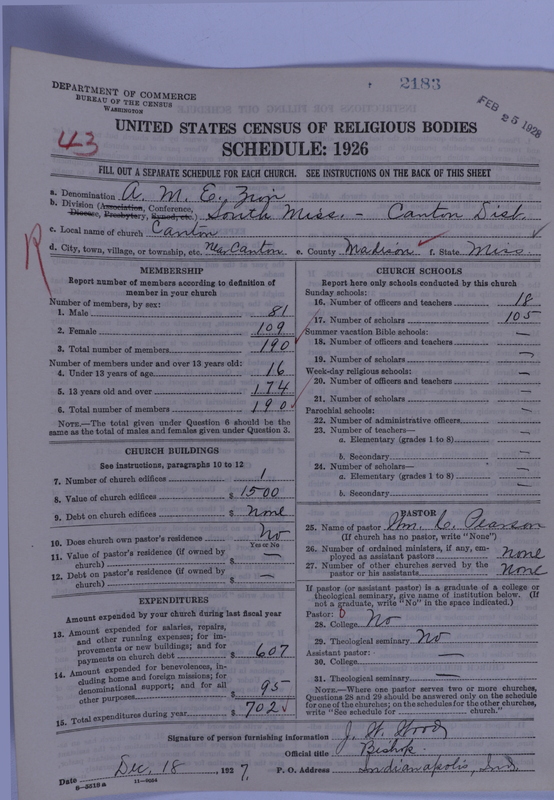 2183
DEPARTMENT OF COMMERCE
BUREAU OF THE CENSUS
WASHINGTON
FEB 25 1928
43
UNITED STATES CENSUS OF RELIGIOUS BODIES
SCHEDULE: 1926
FILL OUT A SEPARATE SCHEDULE FOR EACH CHURCH. SEE INSTRUCTIONS ON THE BACK OF THIS SHEET
a. Denomination A. M. E. Zion
b. Division (Association, Conference, Diocese, Presbytery, Synod, etc.) South Miss. - Canton Dist.
c. Local name of church Canton
d. City, town, village, or township, etc. Near Canton e. County Madison f. State Miss
R
MEMBERSHIP
Report number of members according to definition of
member in your church
Number of members, by sex:
1. Male 81
2. Female 109
3. Total number of members 190
Number of members under and over 13 years old:
4. Under 13 years of age 16
5. 13 years old and over 174
6. Total number of members 190
NOTE.—The total given under Question 6 should be
same as the total of males and females given under Question 3.
CHURCH BUILDINGS
See instructions, paragraphs 10 to 12
7. Number of church edifices 1
8. Value of church edifices $ 1500
9. Debt on church edifices $ none
10. Does church own pastor's residence No
Yes or No
11. Value of pastor's residence (if owned by
church) $ —
12. Debt on pastor's residence (if owned by
church) $ —
EXPENDITURES
Amount expended by your church during last fiscal year
13. Amount expended for salaries, repairs,
and other running expenses; for im-
provements or new buildings; and for
payments on church debt $ 607
14. Amount expended for benevolences, in-
cluding home and foreign missions; for
denominational support; and for all
other purposes $ 95
15. Total expenditures during year $ 702
CHURCH SCHOOLS
Report here only schools conducted by this church
Sunday schools:
16. Number of officers and teachers 18
17. Number of scholars 105
Summer vacation Bible schools:
18. Number of officers and teachers —
19. Number of scholars —
Week-day religious schools:
20. Number of officers and teachers —
21. Number of scholars —
Parochial schools:
22. Number of administrative officers —
23. Number of teachers—
a. Elementary (grades 1 to 8) —
b. Secondary —
24. Number of scholars—
a. Elementary (grades 1 to 8) —
b. Secondary —
PASTOR
25. Name of pastor Wm. C. Pearson
(If church has no pastor, write "None")
26. Number of ordained ministers, if any, em-
ployed as assistant pastors none
27. Number of other churches served by the
pastor or his assistants None
If pastor (or assistant pastor) is a graduate of a college or
theological seminary, give name of institution below. (If
not a graduate, write "No" in the space indicated.)
Pastor: 0
28. College No
29. Theological seminary No
Assistant pastor: —
30. College
31. Theological seminary —
NOTE.—Where one pastor serves two or more churches,
Questions 28 and 29 should be answered only on the schedule
for one of the churches; on the schedules for the other churches,
write "See schedule for church."
Signature of person furnishing information J. W. Wood
Official title Bishop
Date Dec. 18, 1927, P. O. Address Indianapolis, Ind.
8-3518a 11-9034